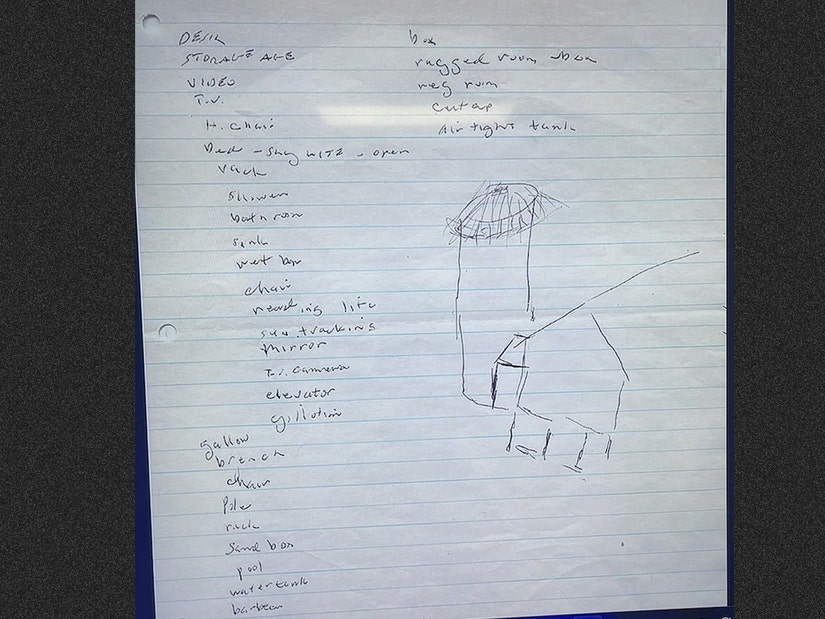 DESK
STORAGE AGE
VIDEO
T.V.
H. chair
bed - - open
rack
shower
bathroom
sink
wet bar
chair
reading lite
sun tracking
mirror
T.V. cammera
elevator
gillotin
gallow
brench
chair
Pile
rack
Sand box
pool
watertank
box
rugged room
reg room
air tight tank